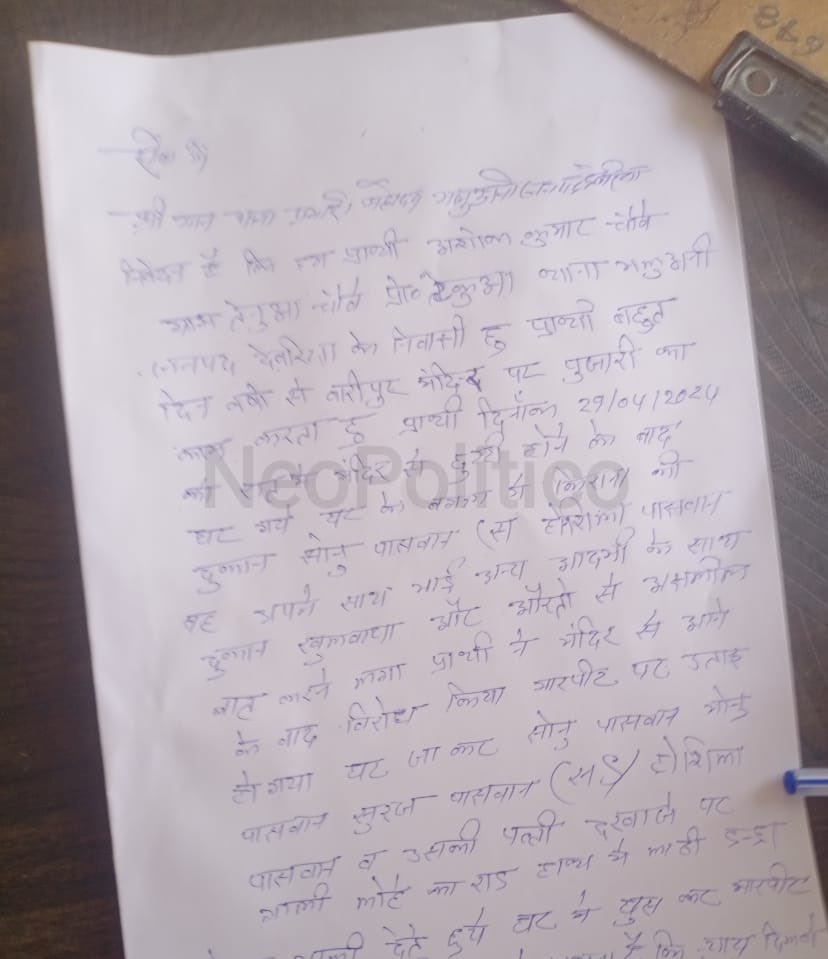 648
सेवा में
श्री मान थाना प्रभारी महोदय मझुआनी जनपद देवरिया
निवेदन है कि हम प्रार्थी अशोक कुमार चौबे
ग्राम तेनुआ चौबे पो० टेकुआ थाना भलुअनी
जनपद देवरिया के निवासी हु प्रार्थी बहुत
दिन वर्षो से बारीपुर मंदिर पर पुजारी का
काम करता हु प्रार्थी दिनाँक 29/04/2024
को मंदिर से छुट्टी होने के बाद
घर गये घर के बगल मे किराना की
दुकान सोनु पासवान (स होशिला पासवान
वह अपने साथ भाई अन्य आदमी के साथ
दुकान खुलवाया और औरतो से अश्लील
बात करने लगा प्रार्थी ने मंदिर से आने
के बाद विरोध किया मारपीट पर उतारू
हो गया घर जा कर सोनु पासवान मोनु
पासवान सुरज पासवान (स०) होशिला
पासवान व उसकी पत्नी दरवाजे पर
गाली लोहे का राड हाथ मे लाठी डन्डा
देते हुये घर मे घुस कर मारपीट
है कि
NeoPolitico